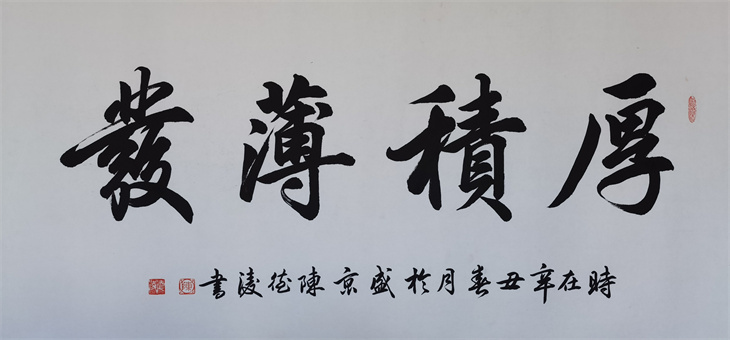 厚積薄發
時在辛丑春月於盛京陳德凌書